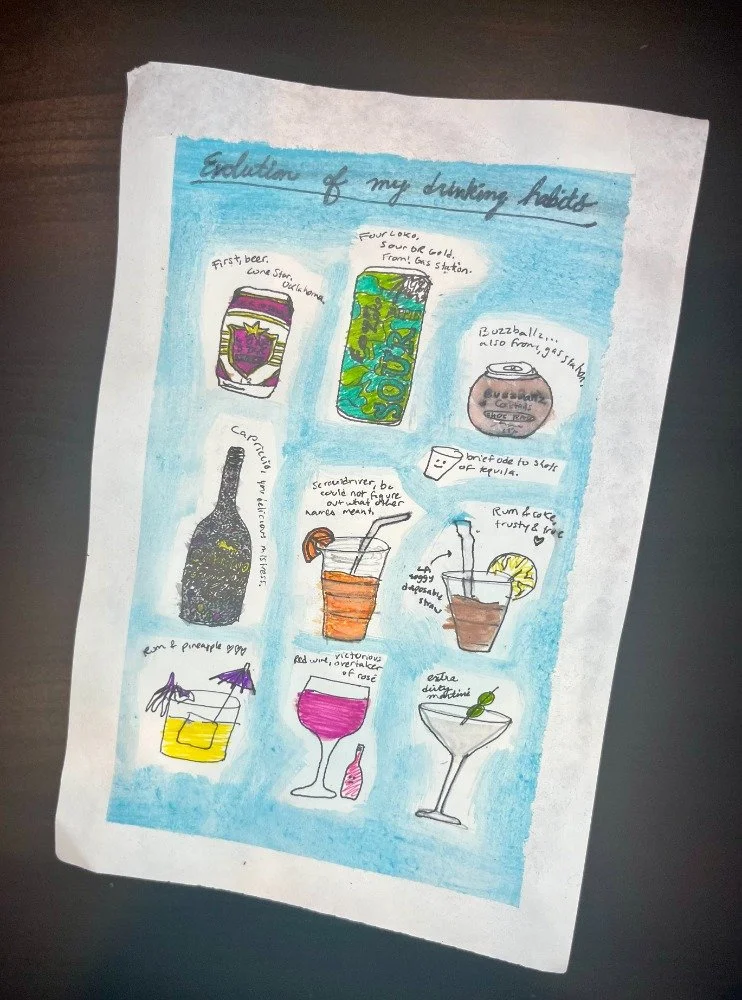 Evolution of my drinking habits
First, beer.
Lone Star,
Oklahoma.
Four Loko,
Sour OR Gold.
From: Gas station.
SOUR
Buzzballz...
also from, gas station.
BUZZBALLZ
Cocktails
Capriccio, you delicious mistress.
brief ode to shots
of tequila.
Screwdriver, bc
could not figure
out what other
names meant.
Rum & coke,
trusty & true
soggy
disposable
straw
Rum & pineapple
Red wine, victorious
overtaker
of rosé
extra
dirty
martini